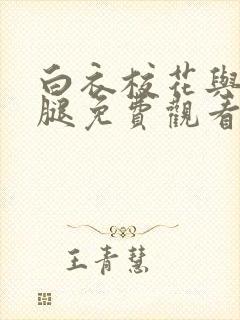 白衣校花與
腿免費觀看
王青慧